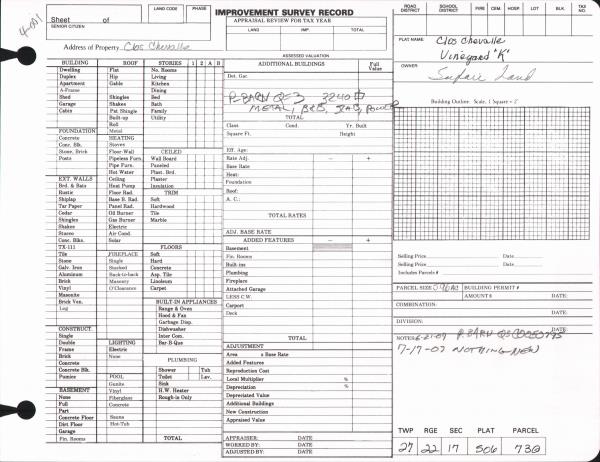 4-001
IMPROVEMENT SURVEY RECORD
Sheet of
SENIOR CITIZEN
LAND CODE PHASE
APPRAISAL REVIEW FOR TAX YEAR
LAND IMP. TOTAL
ASSESSED VALUATION
Address of Property Clos Chevalle
ROAD DISTRICT SCHOOL DISTRICT FIRE CEM. HOSP. LOT BLK. TAX NO.
PLAT NAME: Clos Chevalle
Vineyard "K"
OWNER:
BUILDING ROOF STORIES 1 2 A B
Dwelling Flat No. Rooms
Duplex Hip Living
Apartment Gable Kitchen
A-Frame Dining
Shed Shingles Bed
Garage Shakes Bath
Cabin Pat Shingle Family
Built-up Utility
Roll
FOUNDATION Metal
Concrete HEATING
Conc. Blk. Stoves CEILED
Stone, Brick Floor-Wall Wall Board
Posts Pipeless Furn. Paneled
Pipe Furn. Plast. Brd.
Hot Water Plaster
EXT. WALLS Ceiling Insulation
Brd. & Bats Heat Pump TRIM
Rustic Floor Rad. Soft
Shiplap Base B. Rad. Hardwood
Tar Paper Panel Rad. Tile
Cedar Oil Burner Marble
Shingles Gas Burner
Shakes Electric
Stucco Air Cond.
Conc. Blks. Solar FLOORS
TX-111 Soft
Tile FIREPLACE Hard
Stone Single Concrete
Galv. Iron Stacked Asp. Tile
Aluminum Back-to-back Linoleum
Brick Masonry Carpet
Vinyl O'Clearance
Masonite
Brick Ven. BUILT-IN APPLIANCES
Log Range & Oven
Hood & Fan
Garbage Disp.
CONSTRUCT. Dishwasher
Single Inter Com.
Double LIGHTING Bar-B-Que
Frame Electric
Brick None PLUMBING
Concrete
Concrete Blk. Shower Tub
Pumice POOL Toilet Lav.
Gunite Sink
BASEMENT Vinyl H.W. Heater
None Fiberglass Rough-in Only
Full Concrete
Part
Concrete Floor Sauna
Dirt Floor Hot-Tub
Garage
Fin. Rooms TOTAL
ADDITIONAL BUILDINGS Full Value
Det. Gar.
P-BARN Q3 3240
METAL,
TOTAL
Class. Cond. Yr. Built
Square Ft. Height
Eff. Age:
Rate Adj. − +
Base Rate
Heat:
Foundation
Roof:
A. C.:
TOTAL RATES
ADJ. BASE RATE
ADDED FEATURES − +
Basement
Fin. Rooms
Built-ins
Plumbing
Fireplace
Attached Garage
LESS C.W.
Carport
Deck
TOTAL
ADJUSTMENT
Area x Base Rate
Added Features
Reproduction Cost
Local Multiplier %
Depreciation %
Depreciated Value
Additional Buildings
New Construction
Appraised Value
APPRAISER: DATE
WORKED BY: DATE
ADJUSTED BY: DATE
Building Outline: Scale, 1 Square = 2'
Selling Price Date
Selling Price Date
Includes Parcels #
PARCEL SIZE BUILDING PERMIT #
AMOUNT $ DATE:
COMBINATION: DATE:
DIVISION: DATE:
NOTES: P-BARN
7-17-07 NOTHING NEW
TWP RGE SEC PLAT PARCEL
27 22 17 506 730